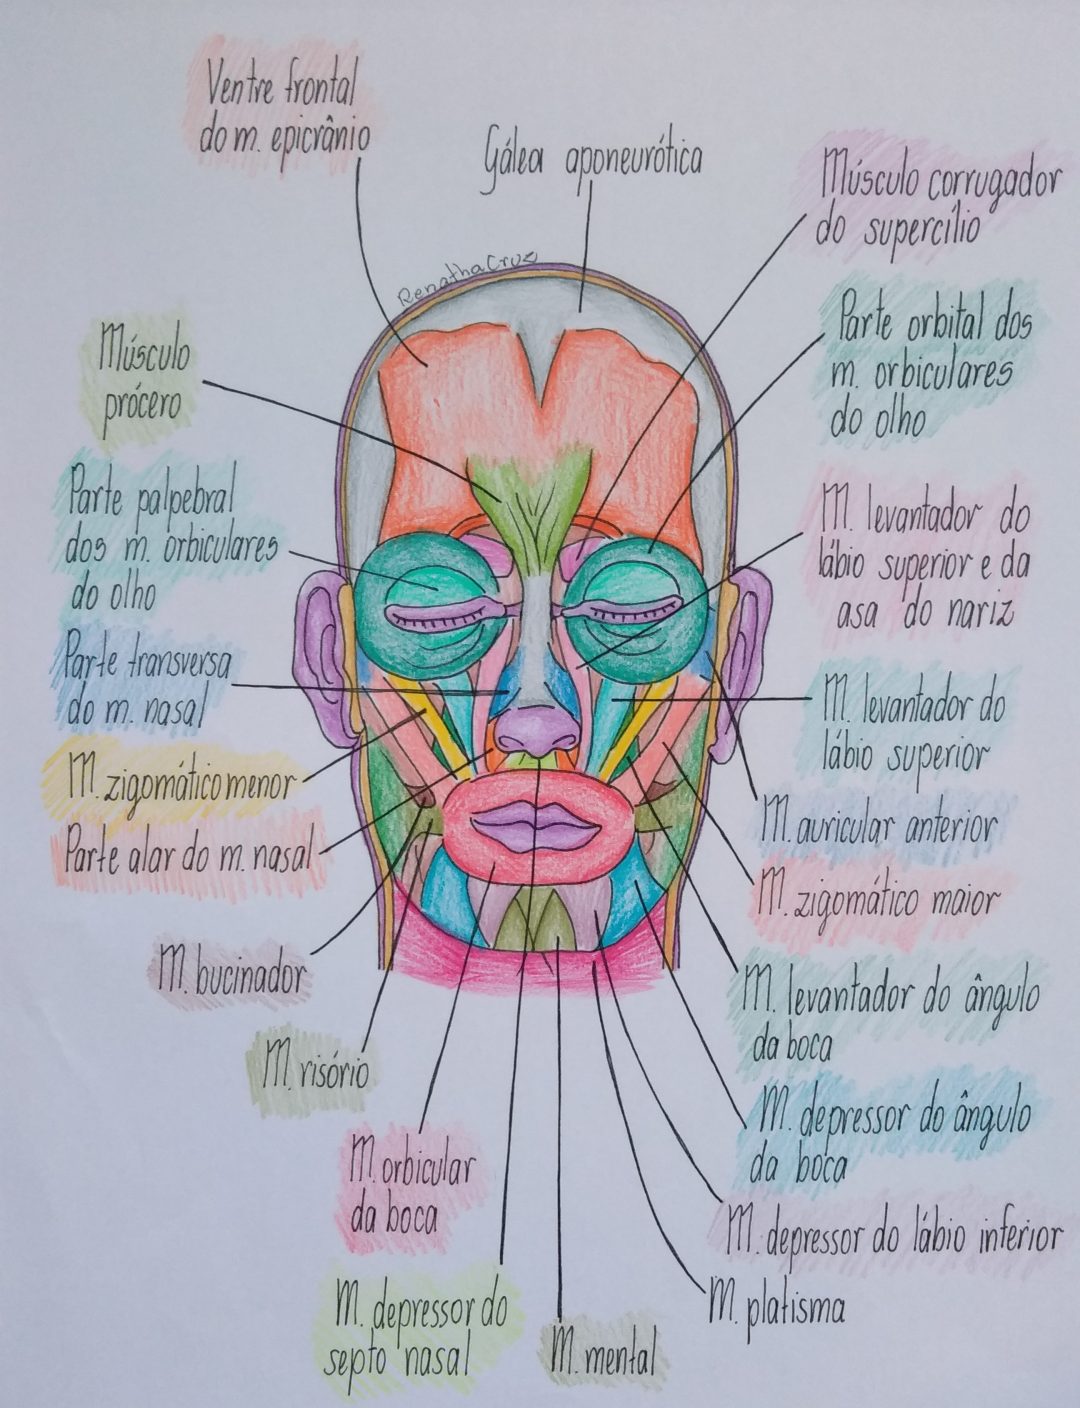 Ventre frontal
do m. epicrânio
Gálea aponeurótica
Músculo corrugador
do supercílio
RenathaCruz
Músculo
prócero
Parte orbital dos
m. orbiculares
do olho
Parte palpebral
dos m. orbiculares
do olho
M. levantador do
lábio superior e da
asa do nariz
Parte transversa
do m. nasal
M. levantador do
lábio superior
M. zigomático menor
M. auricular anterior
Parte alar do m. nasal
M. zigomático maior
M. bucinador
M. levantador do ângulo
da boca
M. risório
M. depressor do ângulo
da boca
M. orbicular
da boca
M. depressor do lábio inferior
M. depressor do
septo nasal
M. platisma
M. mental